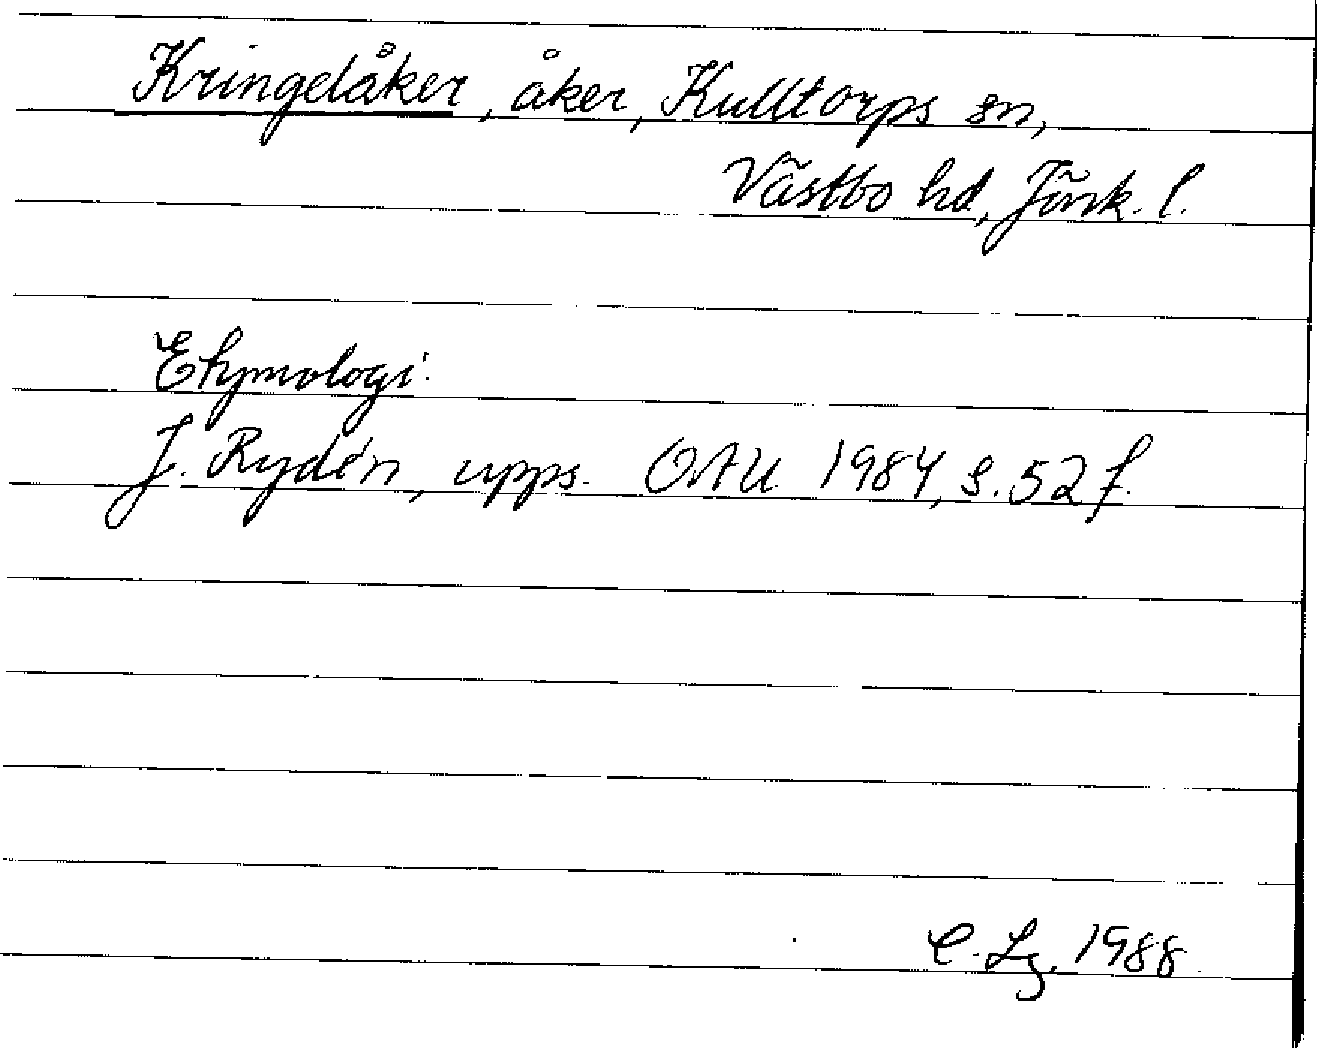 Kringelåker, åker, Kulltorps sn,
Västbo hd, Jönk. l.
Etymologi:
J. Rydén, upps. OAU 1984, s. 52 f.
C. Lg. 1988